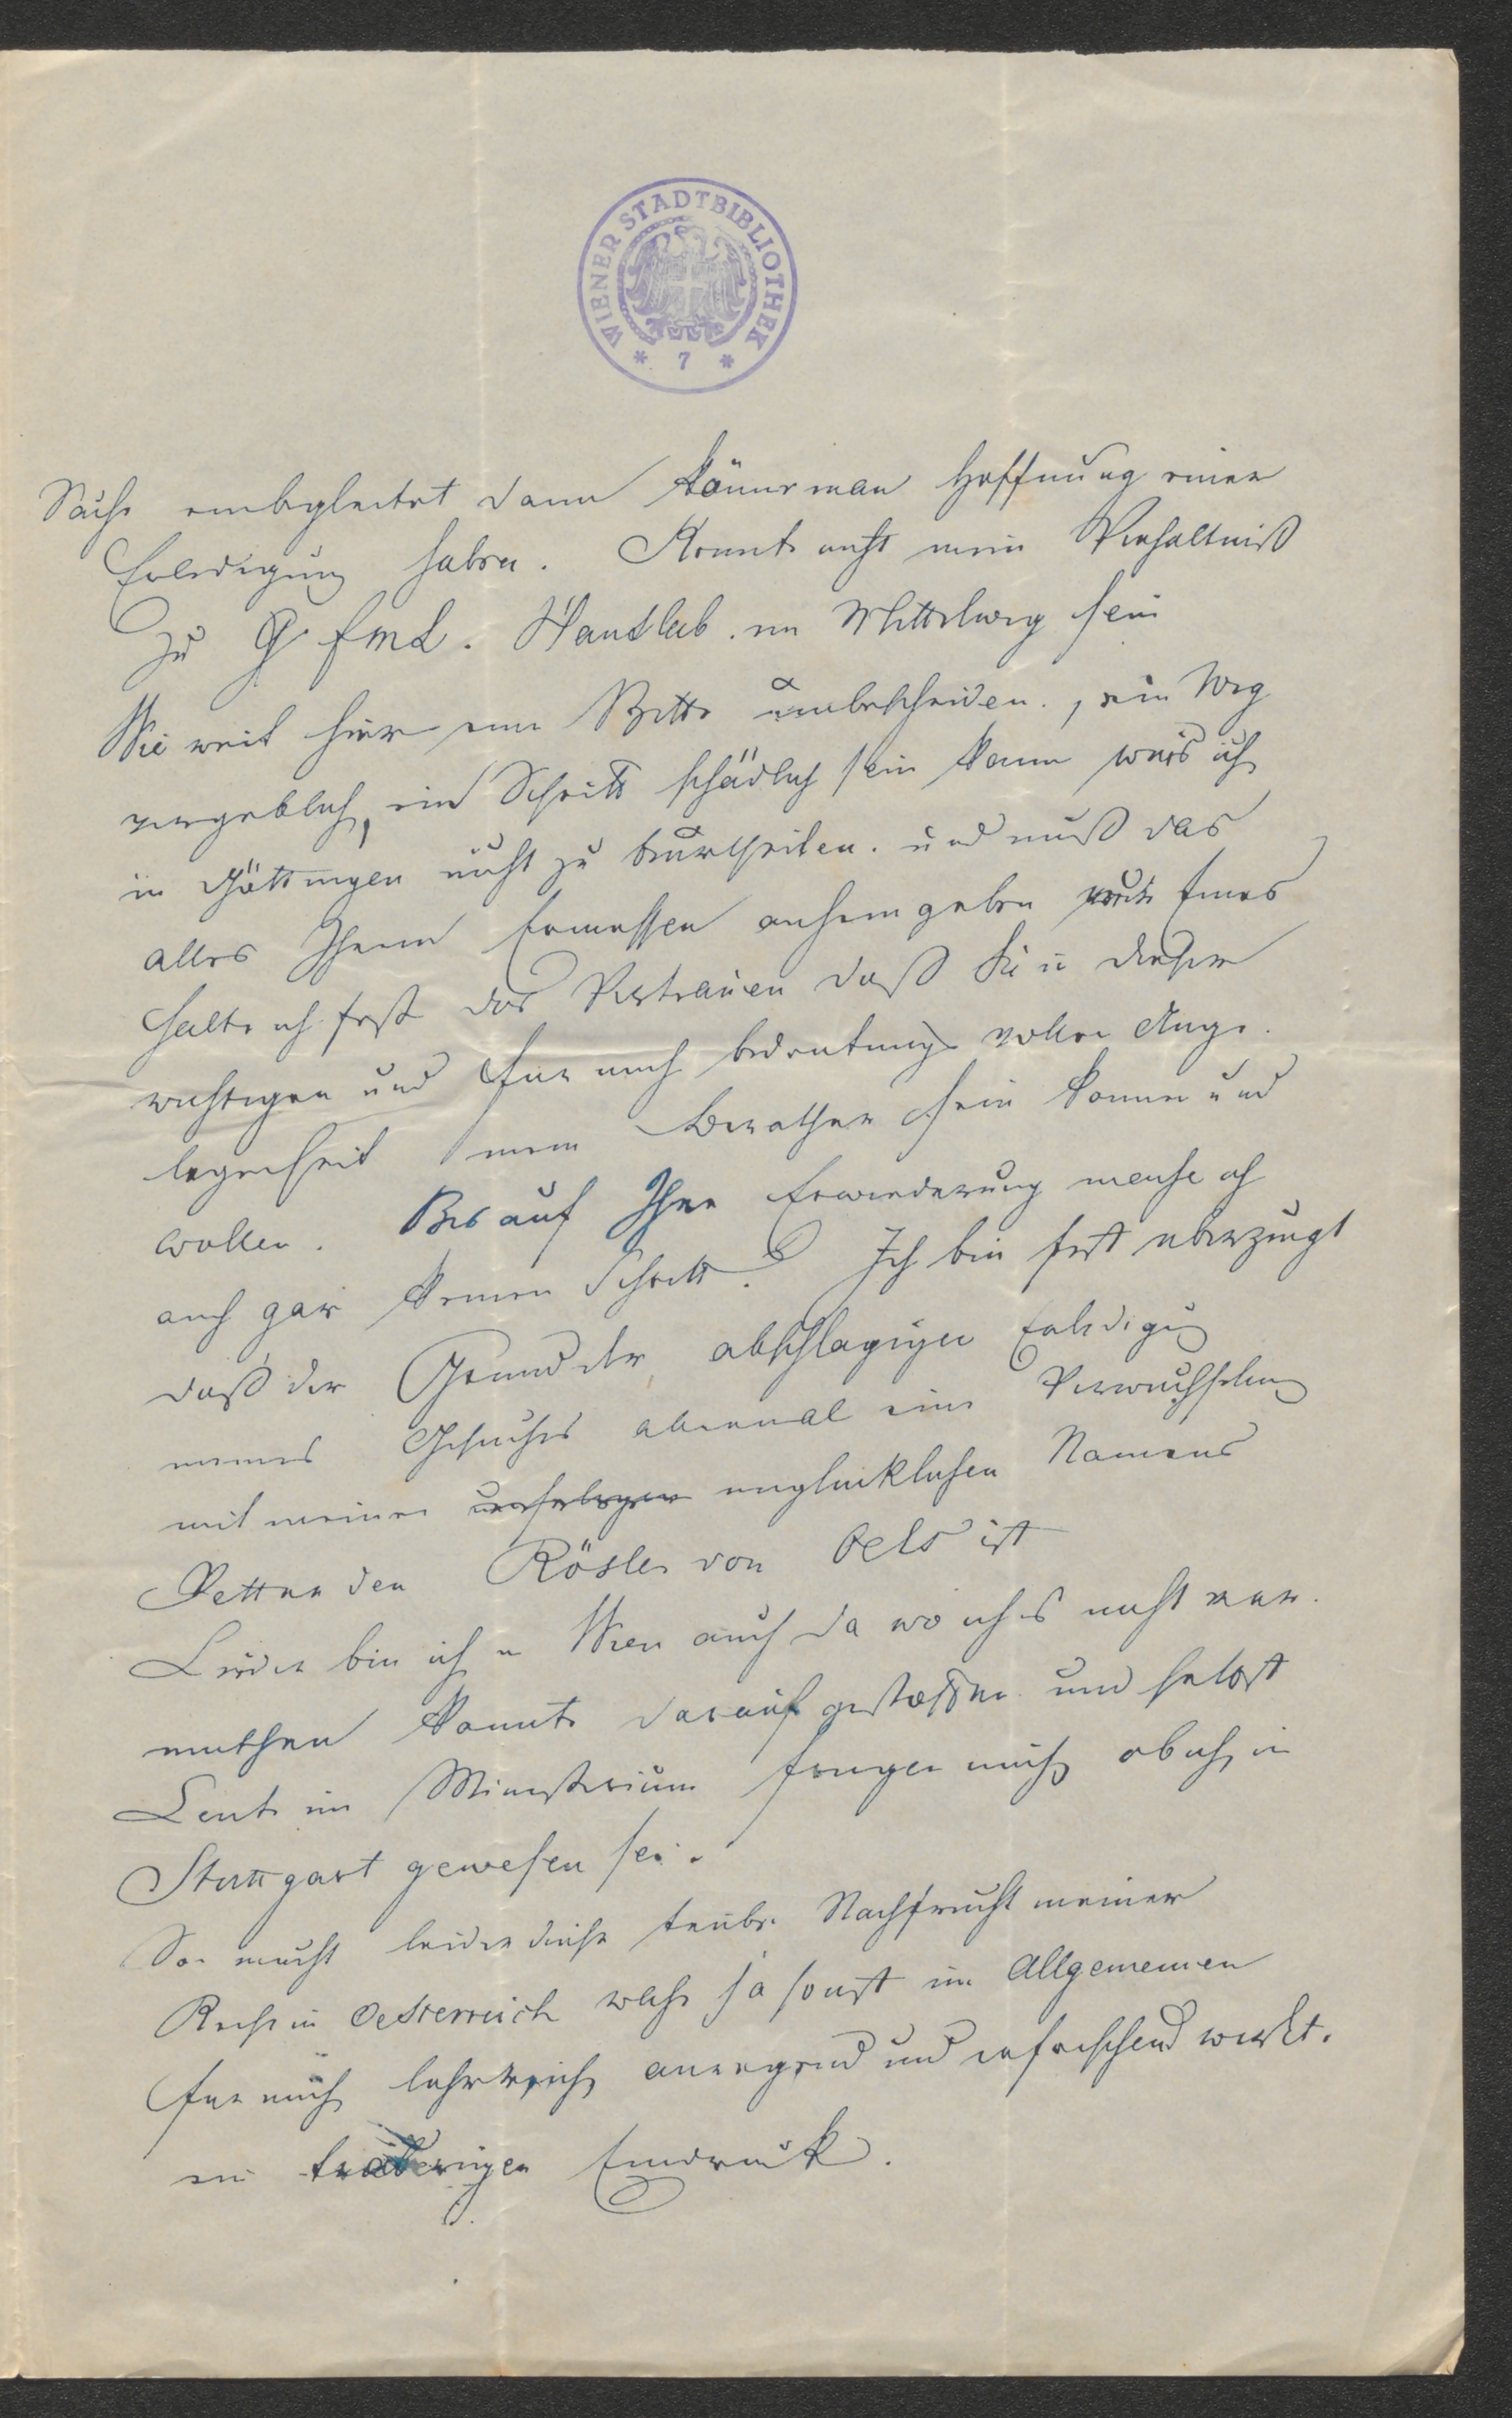 WIENER STADTBIBLIOTHEK
* 7 *
Sache einbegleitet dann könne man Hoffnung einer
Erledigung haben. Konnte nicht mein Verhältniß
zu G FML. Hauslab. ein Mittelweg sein
Wie weit hier eine Bitte unbescheiden., ein Weg
vergeblich, ein Schritt schädlich sein kann weis ich
in Göttingen nicht zu beurtheilen. und muß das
alles Ihrem Ermessen anheim geben nur Eines
halte ich fest das Vertrauen daß Sie in dieser
wichtigen und für mich bedeutungsvollen Ange-
legenheit mein Berather sein konnen und
wollen. Bis auf Ihre Erwiederung mache ich
auch gar keinen Schritt. Ich bin fest uberzeugt
daß der Grund der abschlagigen Erledigung
meines Gesuches abermal eine Verwechselung
mit meinem unglücklichen Namens
Vetter den Rösler von Oels ist
Leider bin ich in Wien auch da wo ich es nicht ver-
muthen konnte darauf gestoßen und selbst
Leute im Ministerium frugen mich ob ich in
Stuttgart gewesen sei.
So macht leider diese trube Nachfrucht meiner
Reise in Oesterreich welche ja sonst im Allgemeinen
für mich lehrreich anregend und erfrischend wirkt.
ein traurigen Eindruck.